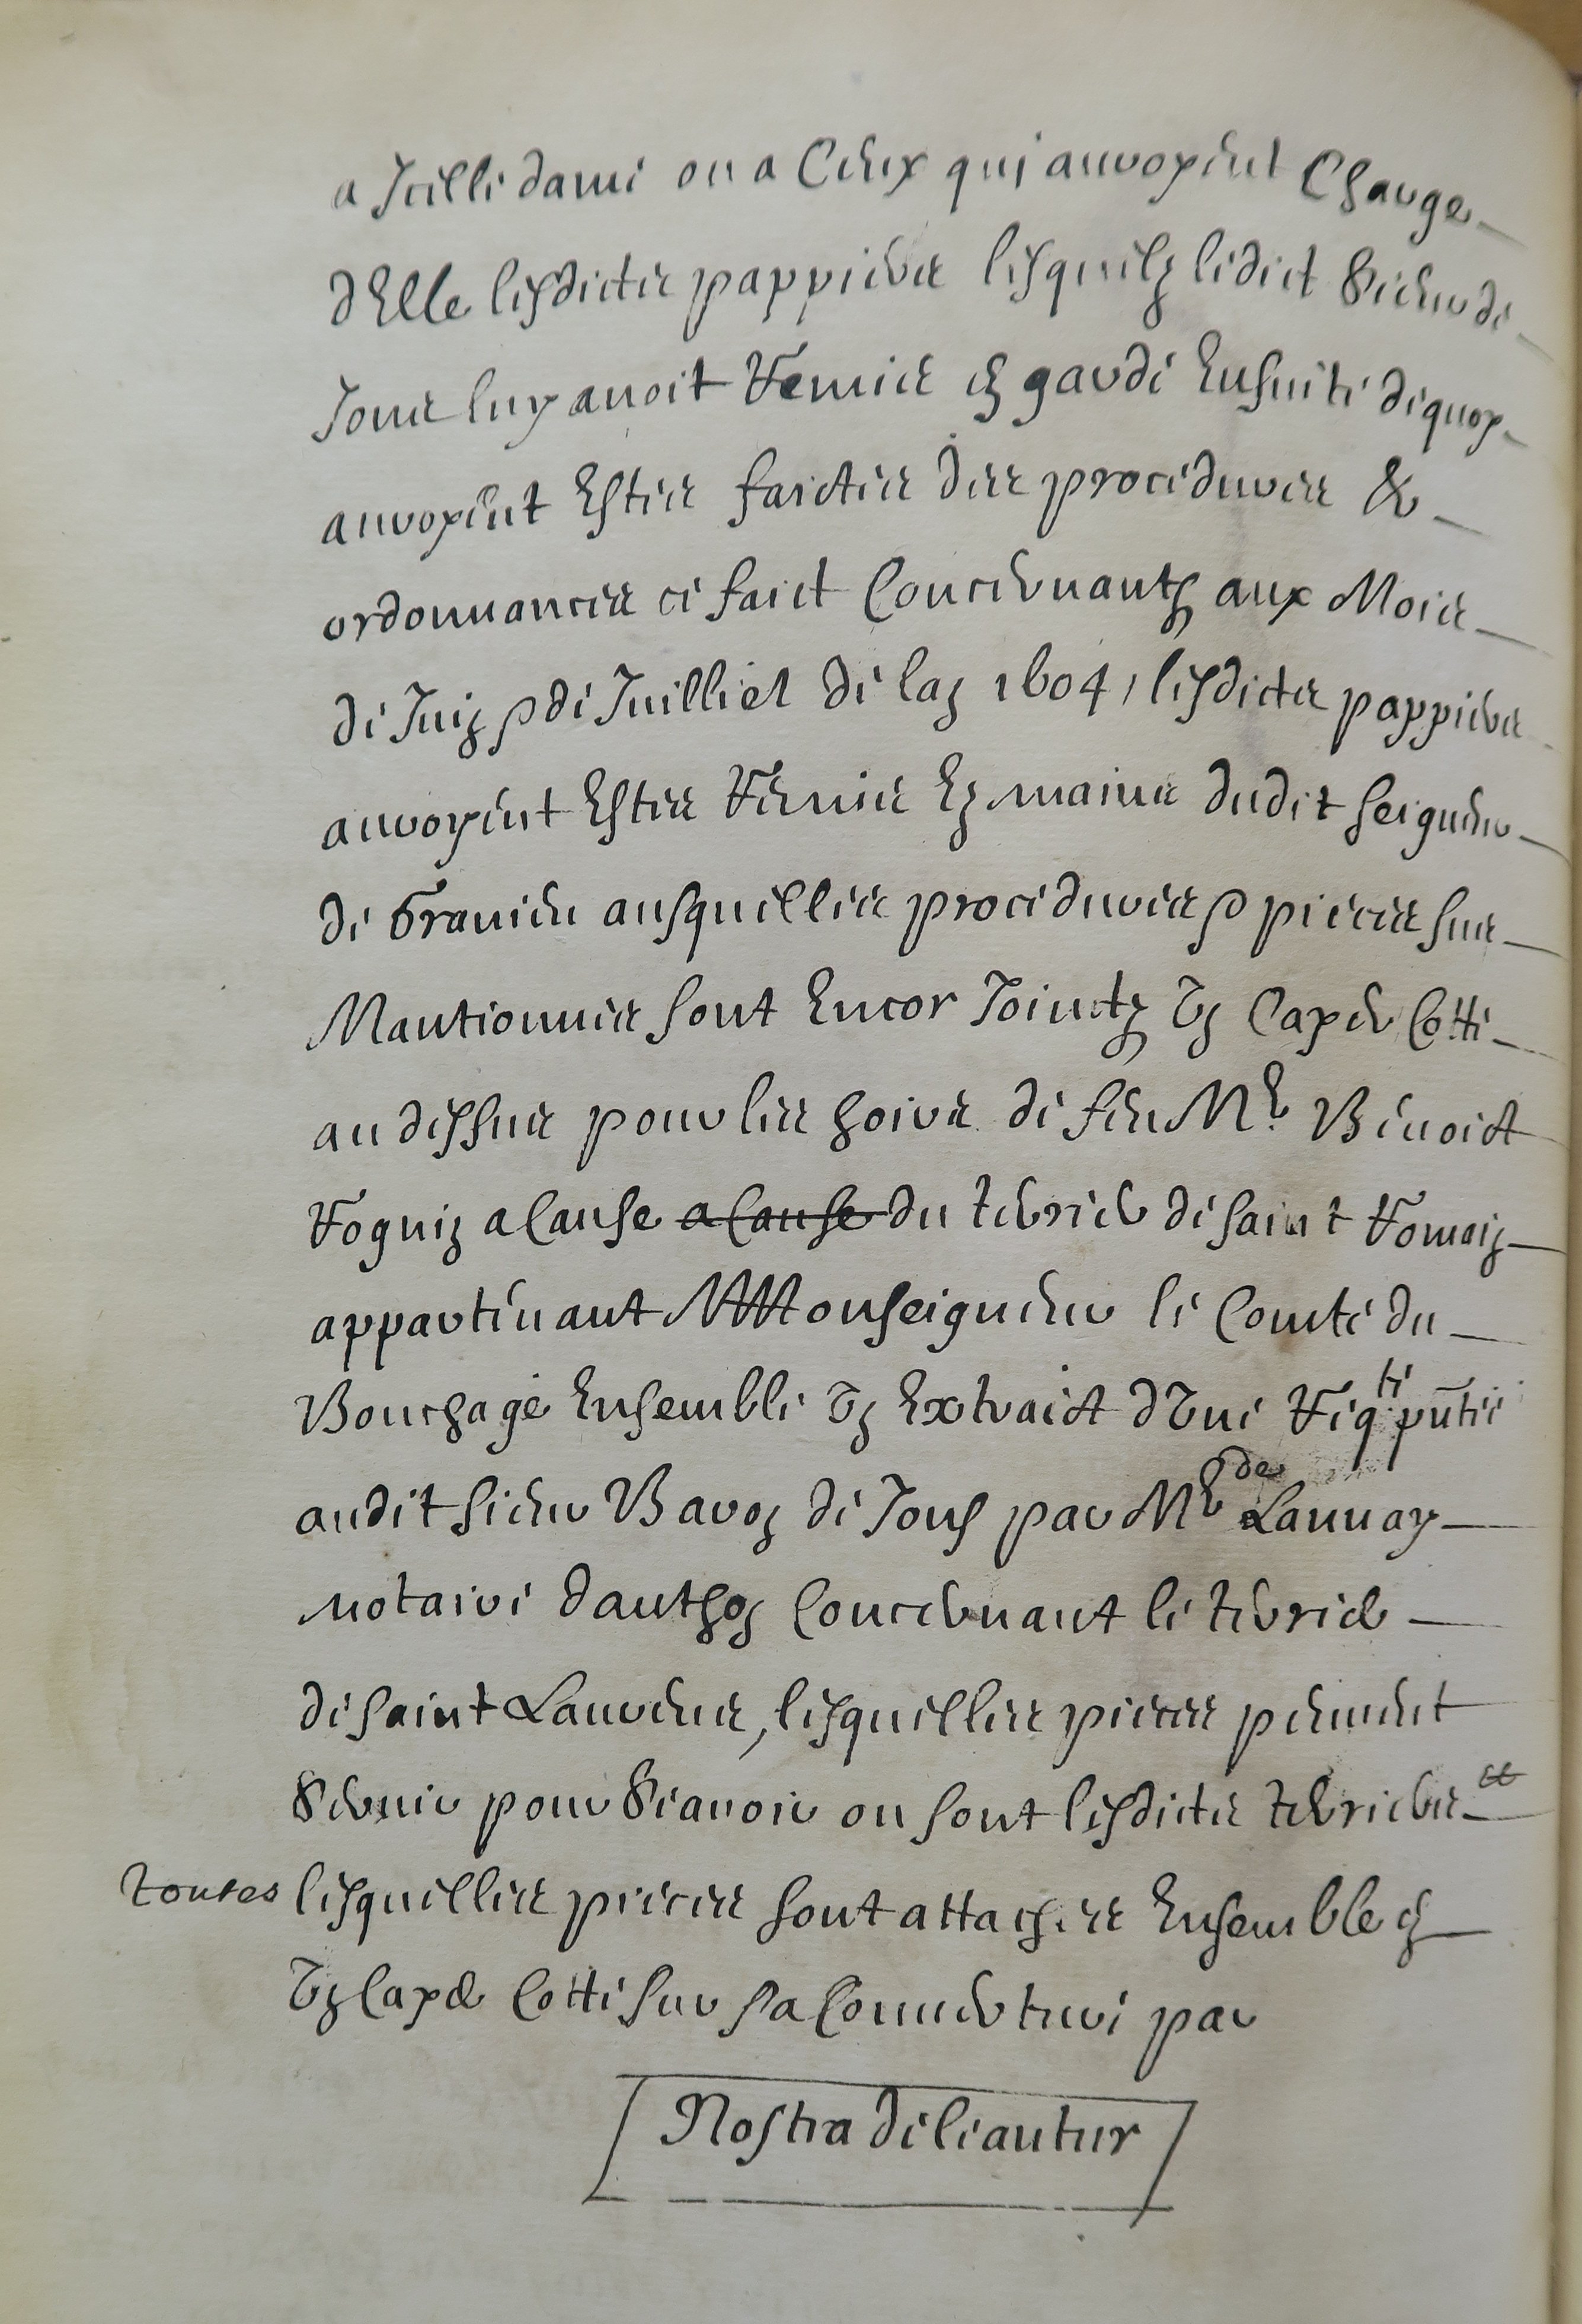 a Icelle dame ou a Ceux qui auroyent Charge
dElle lesdictes pappiers lesquelz ledict Sieur de
Jons luy avoit Remis en garde Ensuite dequoy
auroyent Estes faictes des procedures &
ordonnances ce faict Concernantz aux Mois
de Juin & de Juilliet de lan 1604, lesdicts pappiers
auroyent Estes Remis En mains dudit seigneur
de Gravieu ausquelles procedures & pieces sus
Mantionnes sont Encor Joinctz Un Cayer Cotté
au dessus pour les hoirs de feu Mr Benoict
Roguin a Cause a Cause du terrier de saint Romain
appartenant A Monseigneur le Comte du
Bouchage Ensemble Un Extraict dUne Reqte pñtée
audit sieur Baron de Jons par Mr de Launay
notaire danthon Concernant le terrier
de saint Laurens, lesquelles pieces peuvent
Servir pour Scavoir ou sont lesdicts terriers et
toutes lesquelles pieces sont attachees Ensemble en
Un Cayer Cotté sur sa Couverture par
Nostra deleantur